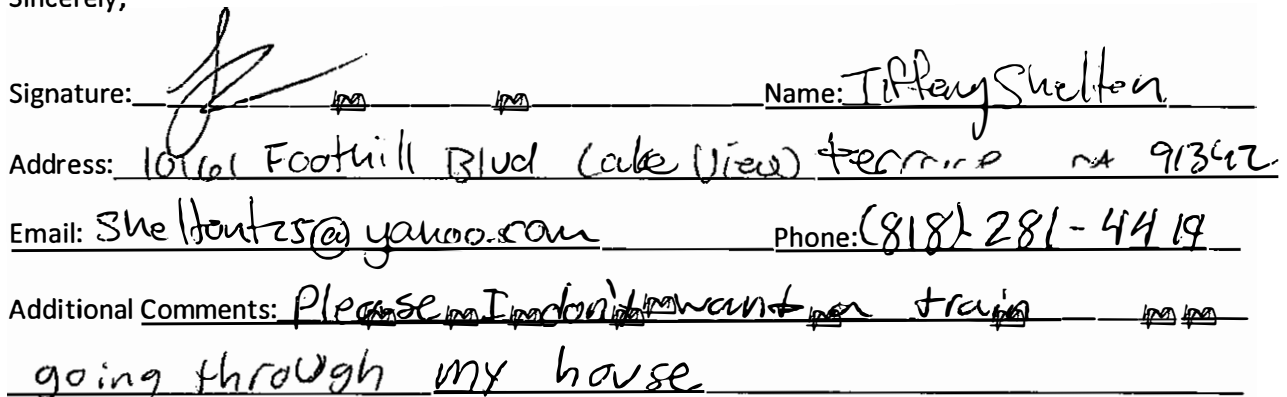 Sincerely,
Signature: Name: Tiffany Shelton
Address: Foothill Blvd Lake View terrace CA 91342
Email: @yahoo.com Phone: (818) 281-4419
Additional Comments: Please I don't want a train
going through my house